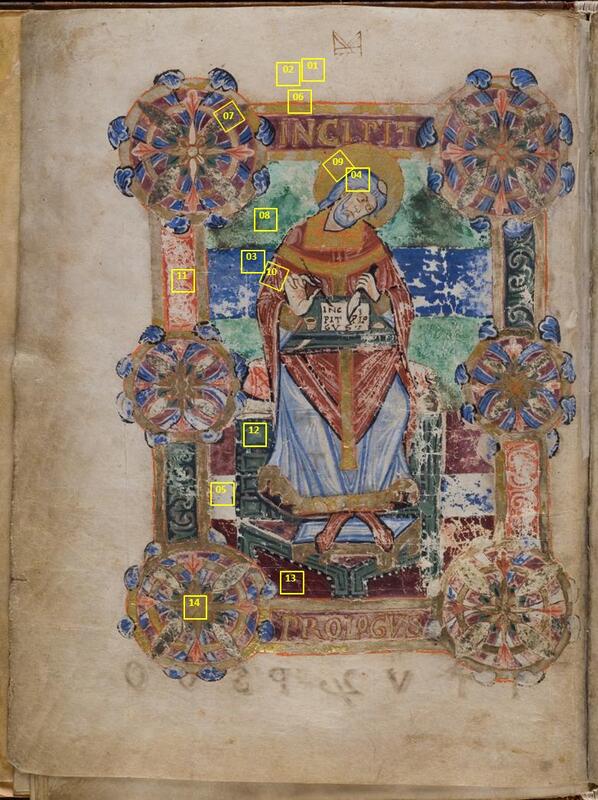 02 01
06
07
INCIPIT
09
04
08
03
10
11
INC
PIT
12
05
13
14
PROLOGVS